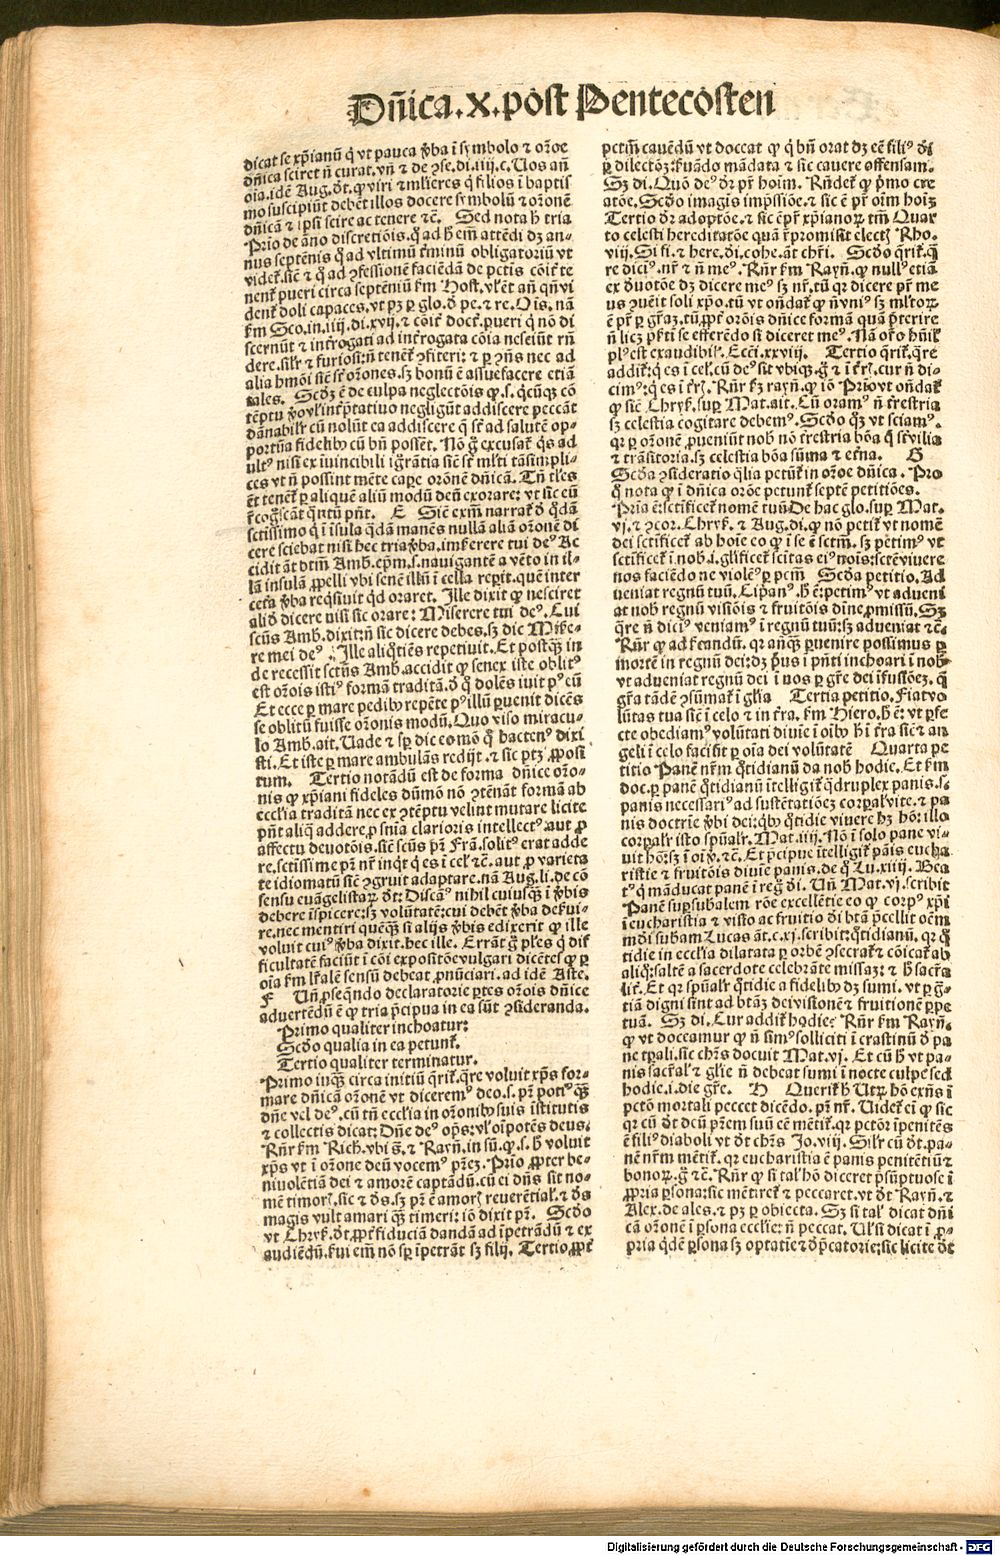 Dn̄ica.X.post Pentecosten
dicat se xp̄ianū q̄ vt pauca ꝟba ī symbolo ⁊ or̄oe
dn̄ica sciret n̄ curat. vn̄ ⁊ de ꝯse. di. iiij. c. Uos an̄
oīa. idē Aug. d̄t. ꝙ viri ⁊ ml̄ieres q̄ filios ī baptis
mo suscipiūt debēt illos docere symbolū ⁊ or̄onē
dn̄icā ⁊ ip̄si scire ac tenere ⁊c̄. Sed nota h̄ tria
Prīo de āno discretiōis. q̄ ad h̄ em̄ attēdi dꝫ an-
nus septenīs q̄ ad vltimū t̓minū obligatoriū vt
videt᷑. sic̄ ⁊ q̄ ad ꝯfessionē faciēdā de pctīs cōit᷑ te
nent᷑ pueri circa septēniū k̓m Host. vl̓ēt an̄ qn̄ vi
dent᷑ doli capaces. vt pꝫ ꝑ glo. d̄ pe. ⁊ re. O īs. nā
k̓m Sco. in. iiij. di. xvij. ⁊ cōit᷑ doct᷑. pueri q̄ nō di
scernūt ⁊ int̓rogati ad int̓rogata cōia nesciūt rn̄
dere. sil̓r ⁊ furiosi: n̄ tenēt᷑ ꝯfiteri: ⁊ ꝑ ꝯn̄s nec ad
alia hmōi sic̄ sr̄ or̄ones. sꝫ bonū ē assuefacere etiā
tales. Scd̓ꝫ ē de culpa neglectōis ꝙ. s. q̄cūqꝫ cō
tēptu ꝓͥo vl̓ int̓p̄tatiuo negligūt addiscere peccāt
dānabil̓r cū nolūt ea addiscere q̄ sr̄ ad salutē op-
portūa fidelibꝰ cū bn̄ possēt. Nō g̊ excusat᷑ q̄s ad
ultꝰ nisi ex īuincibili igr̄antia sic̄ sr̄ ml̓ti tā simpli-
ces vt n̄ possint mēte cape or̄onē dn̄icā. Tn̄ tl̓es
ēt tenēt᷑ ꝑ aliquē aliū modū deū exorare: vt sic eū
r̓cog̓scāt q̄ntū pn̄t. E Sic̄ exm̄ narrat᷑ d̄ q̄dā
sctīssimo q̄ ī īsula q̄dā manēs nullā aliā or̄onē di
cere sciebat nisi hec tria ꝟba. im̓rerere tui deꝰ. Ac
cidit āt dtm̄ Amb. ep̄m. s. nauigantē a vēto in il-
lā insulā ꝓpelli vbi senē illū ī cella rep̄it. quē inter
cet̓a ꝟba req̓siuit q̄d oraret. Ille dixit ꝙ nesciret
aliḋ dicere nisi sic orare: Miserere tui deꝰ. Cui
sctūs Amb. dixit: n̄ sic dicere debes. sꝫ dic Mi͛re-
re mei deꝰ. Ille aliq̄tiēs repetiuit. Et postqꝫ in
de recessit sctūs Amb. accidit ꝙ senex iste oblitꝰ
est or̄ois istiꝰ formā traditā. d̄ q̄ dolēs iuit pꝰ eū
Et ecce ꝑ mare pedibꝰ repēte pꝰ illū ꝑuenit dicēs
se oblitū fuisse or̄onis modū. Quo viso miracu-
lo Amb. ait. Uade ⁊ sp̄ dic eo mō q̄ hactenꝰ dixi
sti. Et iste ꝑ mare ambulās redijt. ⁊ sic ptꝫ ꝓposi
tum. Tertio notādū est de forma dn̄ice or̄o-
nis ꝙ xp̄iani fideles dūmō nō ꝯtēnāt formā ab
eccl̓ia traditā nec ex ꝯtēptu velint mutare licite
pn̄t aliq̄ addere ꝓ sn̄ia clarioris intellectꝰ. aut ꝓ
affectu deuotōis. sic̄ sctūs pr̄ Frā. solitꝰ erat adde
re. sctīssime pr̄ nr̄ inq̓t q̄ es ī cel̓ ⁊c̄. aut ꝓ varieta
te idiomatū sic̄ ꝯgruit adaptare. nā Aug. li. de cō
sensu euāgelistaꝝ d̄t: Discāꝰ nihil cuiusqꝫ ī ꝟbis
debere īspicere: sꝫ volūtatē: cui debēt ꝟba deb̓ui-
re. nec mentiri quēqꝫ si alijs ꝟbis edixerit ꝙ ille
voluit cuiꝰ ꝟba dixit. hec ille. Errāt g̊ pl̓es q̄ dif
ficultatē faciūt ī cōi expositōe vulgari dicētes ꝙ ꝑ
oīa k̓m lr̄alē sensū debeat ꝓnūciari. ad idē Aste.
F Un̄ ꝓseq̄ndo declaratorie ꝑtes or̄ois dn̄ice
aduertēdū ē ꝙ tria p̄cipua in ea sūt ꝯsideranda.
Primo qualiter inchoatur:
Scd̓o qualia in ea petunt᷑.
Tertio qualiter terminatur.
Primo inqꝫ circa initiū q̄rit᷑. q̄re voluit xp̄s for-
mare dn̄icā or̄onē vt dicerem̓ deo. s. pr̄ potiꝰ qꝫ
dn̄e vel deꝰ. cū tn̄ eccl̓ia in or̄onibꝰ suis īstitutis
⁊ collectis dicat: Dn̄e deꝰ op̄s: vl̓ oīpotēs deus.
Rn̄r k̓m Rich. vbi s̄. ⁊ Rayn̄. in sū. ꝙ. s. h̄ voluit
xp̄s vt ī or̄one deū vocemꝰ pr̄eꝫ. Prīo ꝓpter be-
niuolētiā dei ⁊ amorē captādū. cū ei dn̄s sit no-
mē timor̄. sic ⁊ d̄s. sꝫ pr̄ ē amor̄ reuerētial̓. ⁊ d̄s
magis vult amari qꝫ timeri: iō dixit pr̄. Scd̓o
vt Chrys. d̄t. ꝓpt᷑ fiduciā dandā ad īpetrādū ⁊ ex
audiēdū. k̓ui em̄ nō sp̄ īpetrāt sꝫ filij. Tertio ꝓpt᷑
pctm̄ cauēdū vt doceat ꝙ q̄ bn̄ orat dꝫ eē filiꝰ d̓i
ꝑ dilectōꝫ: k̓uādo mādata ⁊ sic cauere offensam.
Sꝫ di. Quō deꝰ d̓r pr̄ hoīm. Rn̄det᷑ ꝙ p̓mo cre
atōe. Scd̓o imagis imp̄ssiōe. ⁊ sic ē pr̄ oīm hoīꝫ
Tertio d̓r adoptōe. ⁊ sic ē pr̄ xp̄ianoꝝ tm̄ Quar
to celesti hereditatōe quā r̓promisit elect᷑ Rho.
viij. Si fi. ⁊ here. d̓i. cohe. āt chr̄i. Scd̓o q̄rit᷑. q̄
re diciꝰ. nr̄ ⁊ n̄ meꝰ. Rn̄r k̓m Rayn̄. ꝙ nullꝰ etiā
ex d̓uotōe dꝫ dicere meꝰ sꝫ nr̄. tū qr dicere pr̄ me
us ꝯuēit soli xp̄o. tū vt on̄dat᷑ ꝙ n̄ vniꝰ sꝫ ml̓toꝝ
ē pr̄ ꝑ gr̄aꝫ. tū ꝓpt᷑ or̄ois dn̄ice formā quā p̄terire
n̄ licꝫ p̓r̄ti se efferēdo si diceret meꝰ. Nā or̄o hūil᷑
plꝰ est exaudibil᷑. Ecci. xxviij. Tertio q̄rit᷑. q̄re
addit᷑: q̄ es ī cel̓. cū deꝰ sit vbiqꝫ. g̊ ⁊ ī t̓r̄. cur n̄ di-
cimꝰ: q̄ es ī t̓r̄. Rn̄r k̓ꝫ rayn̄. ꝙ iō Prīo vt on̄dat᷑
ꝙ sic̄ Chrys. sup Mat. ait. Cū oramꝰ n̄ t̓restria
sꝫ celestia cogitare debemꝰ. Scd̓o qꝫ vt sciamꝰ.
qr ꝑ or̄onē ꝓueniūt nob̓ nō t̓restria bōa q̄ s̓uilia
⁊ trāsitoria. sꝫ celestia bōa sūma ⁊ et̓na. G
Scd̓a ꝯsideratio q̄lia petūt᷑ in or̄oe dn̄ica. Pro
q̄ nota ꝙ ī dn̄ica orōe petunt᷑ septē petitiōes.
Pr̄ia ē: sctīficet᷑ nomē tuū De hac glo. sup Mat.
vj. ⁊ ꝯcor. Chrys. ⁊ Aug. di. ꝙ nō petit᷑ vt nomē
dei sctīficet᷑ ab hoīe eo ꝙ ī se ē sctm̄. sꝫ petimꝰ vt
sctīficet᷑ ī nob̓. i. gl̓ificet᷑ sctītas eiꝰ noīs: sctēviuere
nos faciēdo ne violēt᷑ ꝑ pctm̄ Scd̓a petitio. Ad
ueniat regnū tuū. Cip̓anꝰ. h̄ ē: petimꝰ vt adueni
at nob̓ regnū visiōis ⁊ fruitōis diuīe ꝓmissū. Sꝫ
q̄re n̄ diciꝰ veniamꝰ ī regnū tuū: sꝫ adueniat ⁊c̄.
Rn̄r ꝙ ad h̓eandū. qr anq̄ꝫ ꝑuenire possimus ꝑ
mortē in regnū dei: dꝫ p̓us ī pn̄ti inchoari ī nob̓
vt adueniat regnū dei ī nos ꝑ gr̄e dei īfusiōeꝫ. q̄
gr̄a tādē ꝯsūmat᷑ ī gl̓ia Tertia petitio. Fiat vo
lūtas tua sic̄ ī celo ⁊ in t̓ra. k̓m Hiero. h̄ ē: vt ꝑfe
cte obediamꝰ volūtati diuīe ī oībꝰ h̄ ī t̓ra sic̄ ⁊ an
geli ī celo faciūt ꝑ oīa dei volūtatē Quarta pe
titio Panē nr̄m q̄tidianū da nob̓ hodie. Et k̓m
doc. ꝑ panē q̄tidianū ītelligit᷑ q̄druplex panis. s.
panis necessariꝰ ad sustētatiōeꝫ corꝑal̓ vite. ⁊ pa
nis doctrīe ꝟbi dei: q̄bꝰ q̄tidie viuere hꝫ hō: illo
corꝑal̓r isto spūal̓r. Mat. iiij. Nō ī solo pane vi-
uit hō: sꝫ ī oī ꝟ. ⁊c̄. Et p̄cipue ītelligit᷑ pāis eucha
ristie ⁊ fruitōis diuīe panis. de q̄ Lu. xiiij. Bea
tꝰ q̄ māducat panē ī reg̓ d̓i. Un̄ Mat. vj. scribit
Panē sup subalem rōe excellētie eo ꝙ corpꝰ xp̄i
ī eucharistia ⁊ visto ac fruitio d̓i btā p̄cellit oēm
mūdi subam Lucas āt. c. xj. scribit: q̄tidianū. qr q̄
tidie in eccl̓ia dilatata ꝑ orbē ꝯsecrat᷑ ⁊ cōicat᷑ ab
aliq̄: saltē a sacerdote celebrāte missaꝫ: ⁊ h̄ sacr̄a
lit᷑. Et qr spūal̓r q̄tidie a fidelibꝰ dꝫ sumi. vt ꝑ g̓-
tiā digni sint ad btāꝫ dei visionē ⁊ fruitionē ꝑpe
tuā. Sꝫ di. Cur addit᷑ hodie? Rn̄r k̓m Rayn̄.
ꝙ vt doceamur ꝙ n̄ simꝰ solliciti ī crastinū d̄ pa
ne tꝑali. sic chr̄s docuit Mat. vj. Et cū h̄ vt pa-
nis sacr̄al᷑ ⁊ gl̓ie n̄ debeat sumi ī nocte culpe sed
hodie. i. die gr̄e. H Querit᷑ h̄ Utꝝ hō exn̄s ī
pctō mortali peccet dicēdo. pr̄ nr̄. Uidet᷑ eī ꝙ sic
qr cū d̄t deū pr̄em suū eē mētit᷑. qr pctōr īpenitēs
ē filiꝰ diaboli vt d̄t chr̄s Jo. viij. Sil̓r cū d̄t. pa-
nē nr̄m mētit᷑. qr eucharistia ē panis penitētiū ⁊
bonoꝝ. g̊ ⁊c̄. Rn̄r ꝙ si tal̓ hō diceret p̄sūptuose ī
ꝓpria ꝑsona: sic mētiret᷑ ⁊ peccaret. vt d̄t Rayn̄. ⁊
Alex. de ales. ⁊ pꝫ ꝑ obiecta. Sꝫ si tal̓ dicat dn̄i
cā or̄onē ī ꝑsona eccl̓ie: n̄ peccat. Ul̓ si dicat ī ꝓ-
pria q̄dē ꝑsona sꝫ optatīe ⁊ dp̄catorie: sic licite d̄t
Digitalisierung gefördert durch die Deutsche Forschungsgemeinschaft - DFG